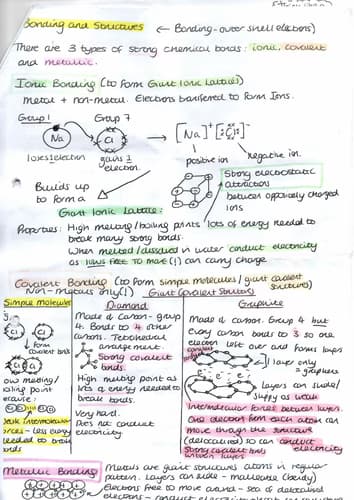 Bonding and Structures ← Bonding - outer shell electrons)
There are 3 types of strong chemical bonds: ionic, covalent
and metallic.
Ionic Bonding (to form Giant Ionic Lattices)
metal + non-metal. Electrons transferred to form Ions.
Group 1 Group 7
Na Cl → [Na]+ [Cl]-
loses 1 electron gains 1 electron. positive ion negative ion.
Builds up
to form a
Giant Ionic Lattice:
Strong electrostatic
attractions
between oppositely charged
ions
Properties: High melting/boiling points lots of energy needed to
break many strong bonds.
When melted/dissolved in water conduct electricity
as ions free to move (1) can carry charge.
Covalent Bonding (to form simple molecules/giant covalent
structures)
Non-metals only(!) Giant Covalent Structures
Simple Molecules
Cl Cl
form
covalent bonds
Cl Cl
low melting/
boiling point
because:
weak intermolecular
forces - less energy
needed to break
bonds
Diamond
Made of carbon - group
4. Bonds to 4 other
carbons. Tetrahedral
arrangement.
Strong covalent
bonds.
High melting point as
lots of energy needed to
break bonds.
Very hard.
Does not conduct
electricity.
Graphite
Made of carbon. Group 4 but
every carbon bonds to 3 so one
electron left over and forms layers
1 layer only
= graphene
Layers can slide/
slippy as weak
intermolecular forces between layers.
One electron from each atom can
move through the structure
(delocalised) so can conduct
electricity
Strong covalent bonds
within layers
Metallic Bonding
Metals are giant structures atoms in regular
pattern. Layers can slide - malleable (bendy)
Electrons free to move around - sea of delocalised
electrons - conduct electricity